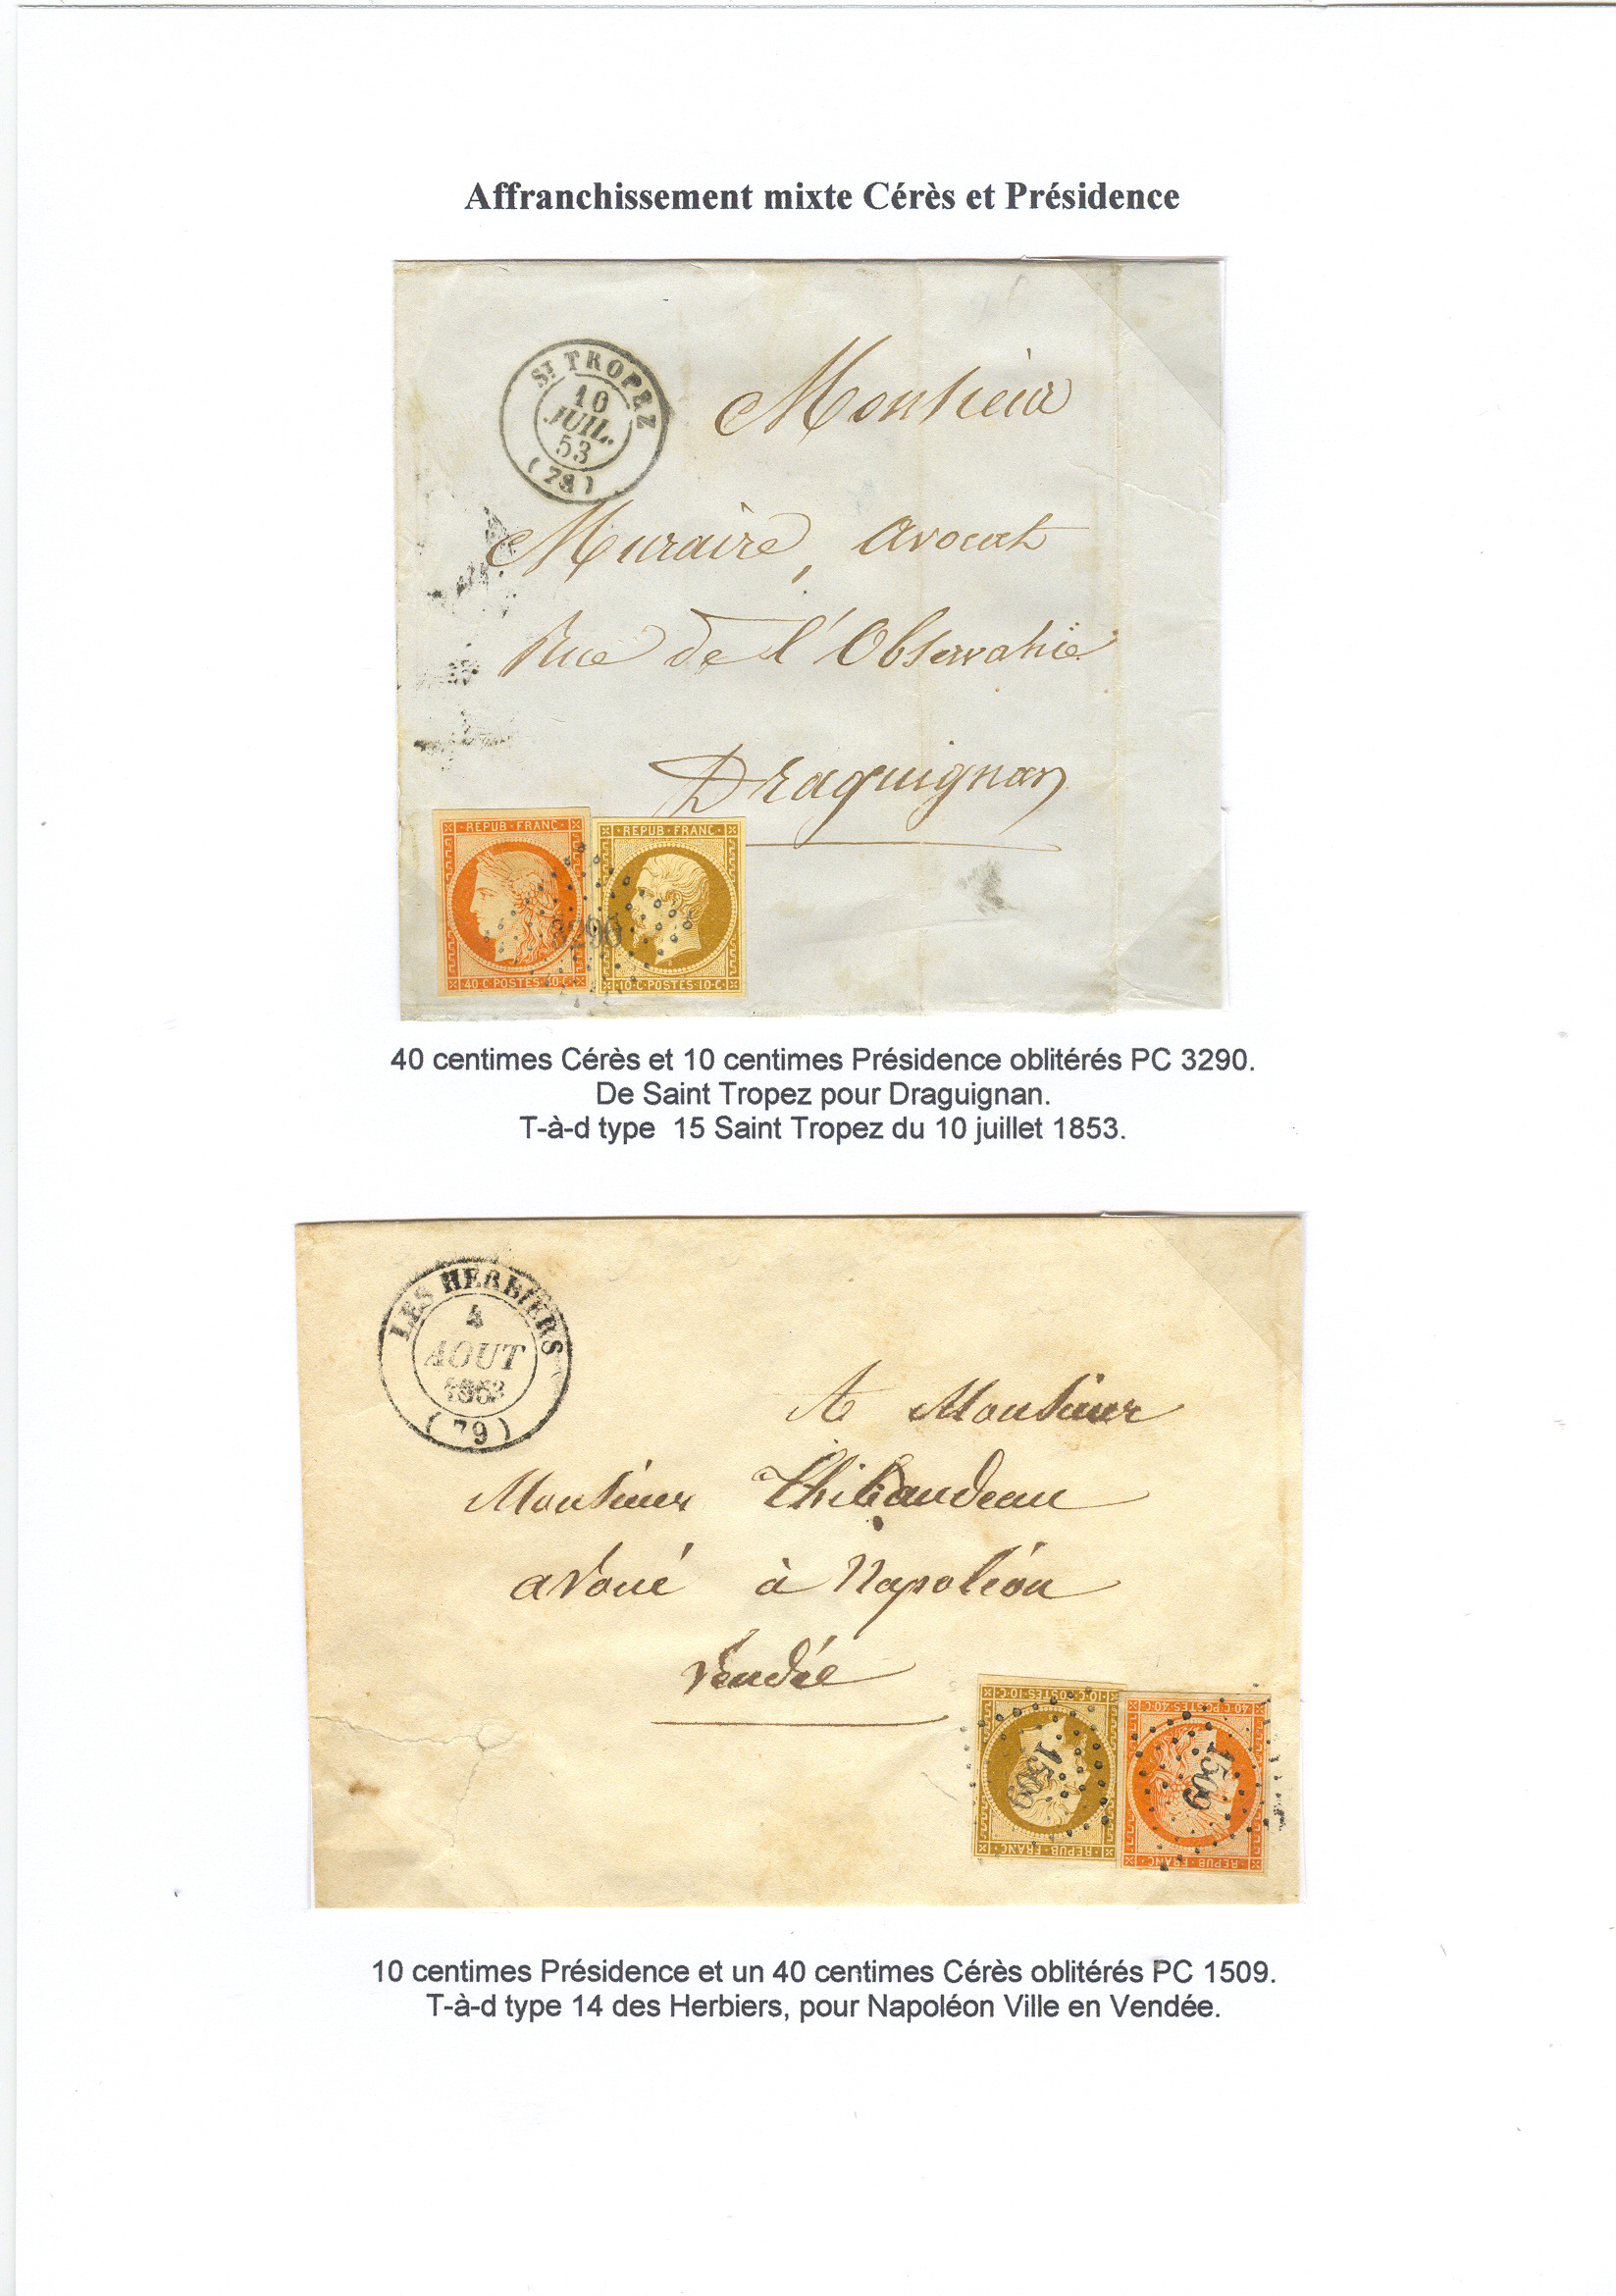 Affranchissement mixte Cérès et Présidence
ST TROPEZ
10
JUIL.
53
(78)
Monsieur
Muraire, avocat
Rue de l'Observance
Draguignan
REPUB·FRANC·
40·C·POSTES·40·C·
REPUB·FRANC·
10·C·POSTES·10·C·
3290
40 centimes Cérès et 10 centimes Présidence oblitérés PC 3290.
De Saint Tropez pour Draguignan.
T-à-d type  15 Saint Tropez du 10 juillet 1853.
LES HERBIERS
4
AOUT
1853
(79)
A Monsieur
Monsieur Thibaudeau
avoué à Napoléon
Vendée
10·C·POSTES·10·C·
1509
REPUB·FRANC·
40·C·POSTES·40·C·
1509
REPUB·FRANC·
10 centimes Présidence et un 40 centimes Cérès oblitérés PC 1509.
T-à-d type 14 des Herbiers, pour Napoléon Ville en Vendée.